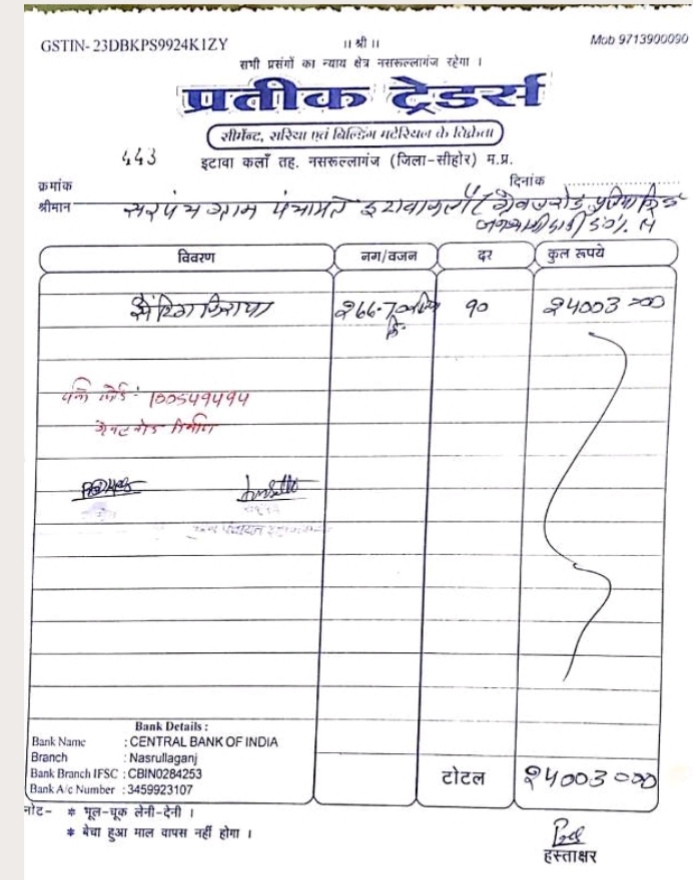 GSTIN- 23DBKPS9924K1ZY
।। श्री ।।
Mob 9713900090
सभी प्रसंगों का न्याय क्षेत्र नसरूल्लागंज रहेगा ।
प्रतीक ट्रेडर्स
सीमेंट, सरिया एवं बिल्डिंग मटेरियल के विक्रेता
443
इटावा कलाँ तह. नसरूल्लागंज (जिला-सीहोर) म.प्र.
क्रमांक
दिनांक
श्रीमान सरपंच ग्राम पंचायत इटावाकलाँ
विवरण नग/वजन दर कुल रूपये
266-70 90 24003=00
100549494
निर्माण
Bank Details :
Bank Name : CENTRAL BANK OF INDIA
Branch : Nasrullaganj
Bank Branch IFSC : CBIN0284253
Bank A/c Number : 3459923107
टोटल 24003=00
नोट- * भूल-चूक लेनी-देनी ।
* बेचा हुआ माल वापस नहीं होगा ।
हस्ताक्षर